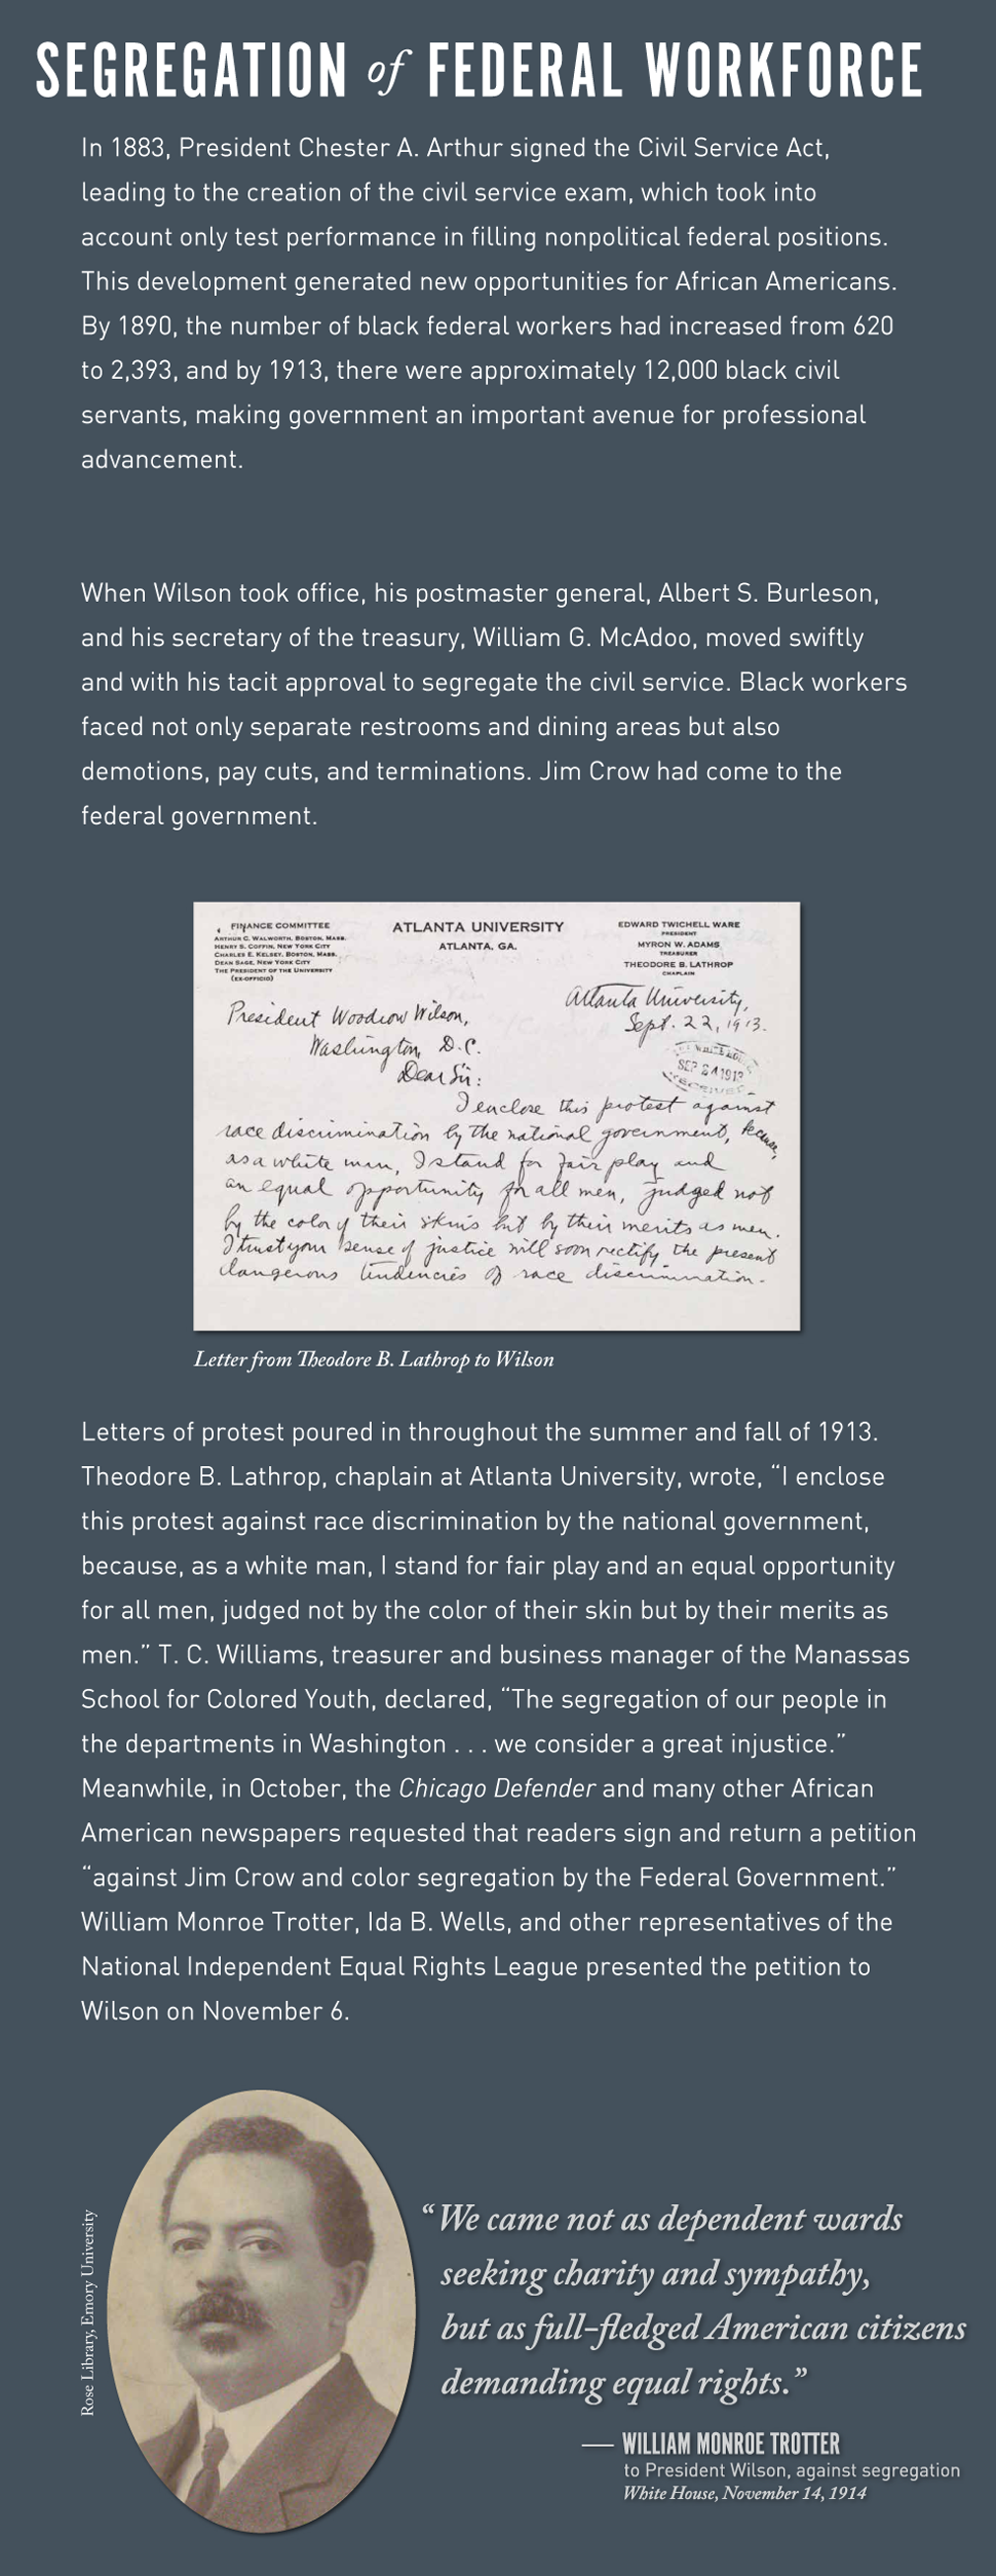 SEGREGATION of FEDERAL WORKFORCE
In 1883, President Chester A. Arthur signed the Civil Service Act,
leading to the creation of the civil service exam, which took into
account only test performance in filling nonpolitical federal positions.
This development generated new opportunities for African Americans.
By 1890, the number of black federal workers had increased from 620
to 2,393, and by 1913, there were approximately 12,000 black civil
servants, making government an important avenue for professional
advancement.
When Wilson took office, his postmaster general, Albert S. Burleson,
and his secretary of the treasury, William G. McAdoo, moved swiftly
and with his tacit approval to segregate the civil service. Black workers
faced not only separate restrooms and dining areas but also
demotions, pay cuts, and terminations. Jim Crow had come to the
federal government.
FINANCE COMMITTEE
ARTHUR C. WALWORTH, BOSTON, MASS.
HENRY S. COFFIN, NEW YORK CITY
CHARLES E. KELSEY, BOSTON, MASS.
DEAN SAGE, NEW YORK CITY
THE PRESIDENT OF THE UNIVERSITY
(EX-OFFICIO)
ATLANTA UNIVERSITY
ATLANTA, GA.
EDWARD TWICHELL WARE
PRESIDENT
MYRON W. ADAMS
TREASURER
THEODORE B. LATHROP
CHAPLAIN
Atlanta University,
Sept. 22, 1913.
President Woodrow Wilson,
Washington, D.C.
THE WHITE HOUSE
SEP 24 1913
RECEIVED
Dear Sir:
I enclose this protest against
race discrimination by the national government, because,
as a white man, I stand for fair play and
an equal opportunity for all men, judged not
by the color of their skins but by their merits as men.
I trust your sense of justice will soon rectify the present
dangerous tendencies of race discrimination.
Letter from Theodore B. Lathrop to Wilson
Letters of protest poured in throughout the summer and fall of 1913.
Theodore B. Lathrop, chaplain at Atlanta University, wrote, “I enclose
this protest against race discrimination by the national government,
because, as a white man, I stand for fair play and an equal opportunity
for all men, judged not by the color of their skin but by their merits as
men.” T. C. Williams, treasurer and business manager of the Manassas
School for Colored Youth, declared, “The segregation of our people in
the departments in Washington . . . we consider a great injustice.”
Meanwhile, in October, the Chicago Defender and many other African
American newspapers requested that readers sign and return a petition
“against Jim Crow and color segregation by the Federal Government.”
William Monroe Trotter, Ida B. Wells, and other representatives of the
National Independent Equal Rights League presented the petition to
Wilson on November 6.
Rose Library, Emory University
“We came not as dependent wards
seeking charity and sympathy,
but as full-fledged American citizens
demanding equal rights.”
— WILLIAM MONROE TROTTER
to President Wilson, against segregation
White House, November 14, 1914